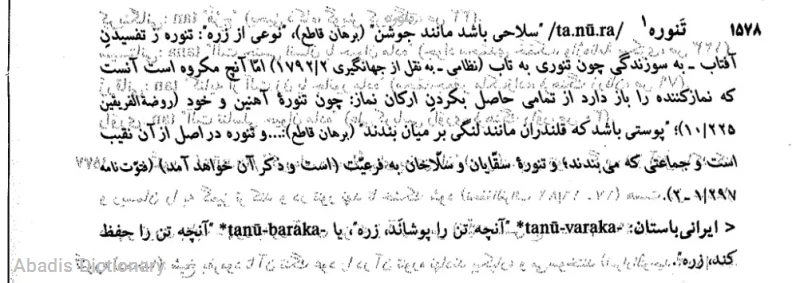 ۱۵۷۸ تَنوره¹ /ta.nū.ra/ "سلاحی باشد مانند جوشن" (برهان قاطع)، "نوعی از زره": تنوره ز تفسیدنِ
آفتاب ـ به سوزندگی چون تنوری به تاب (نظامی ـ به نقل از جهانگیری ۱۷۹۲/۲) امّا آنچ مکروه است آنست
که نمازکننده را باز دارد از تمامی حاصل بکردنِ ارکان نماز: چون تنورهٔ آهنین و خود (روضةالفریقین
۱۰/۲۲۵)؛ "پوستی باشد که قلندران مانند لنگی بر میان بندند" (برهان قاطع):...و تنوره در اصل از آن نقیب
است و جماعتی که می‌بندند؛ و تنورهٔ سقّایان و سلّاخان به فرعیّت (است و ذکر آن خواهد آمد) (فتوّت‌نامه
۲-۱/۲۹۷).
< ایرانی‌باستان: *tanū-varaka- "آنچه تن را پوشاند، زره"، یا *tanū-baraka- "آنچه تن را حفظ
کند، زره".
Abadis Dictionary